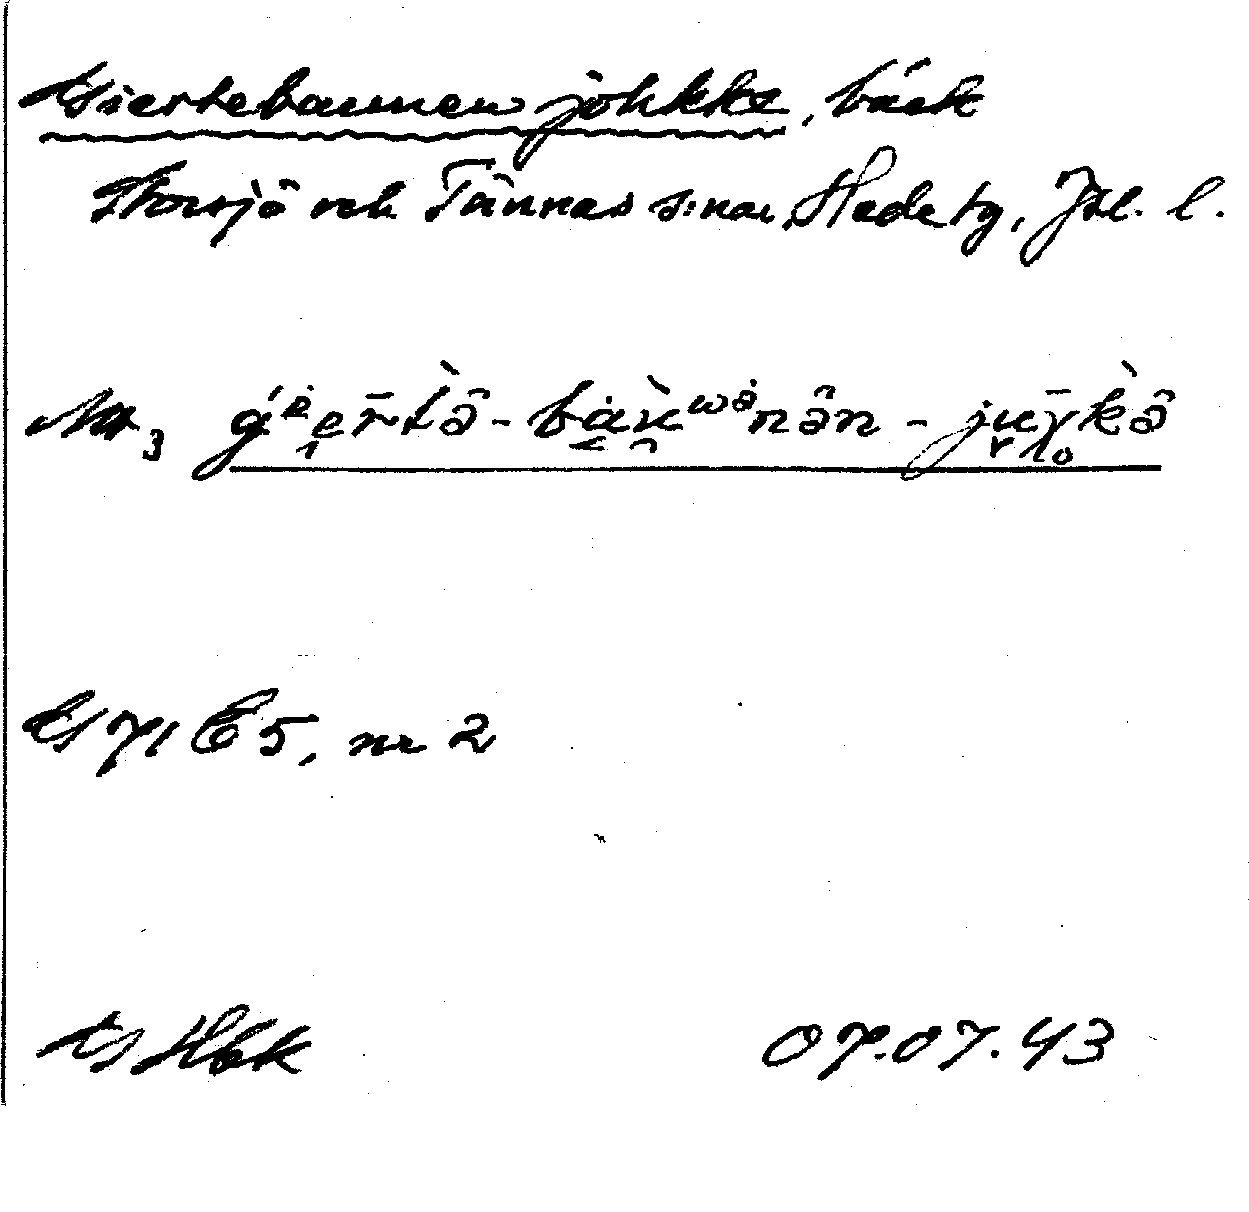 Giertebaunen johkke, bäck
Storsjö och Tännäs s:nar, Hede tg, Jtl. l.
M3 ǵⁱerltâ-bàùʷənân-juχkâ
G 71 C 5, nr 2
GHbk 07.07.43